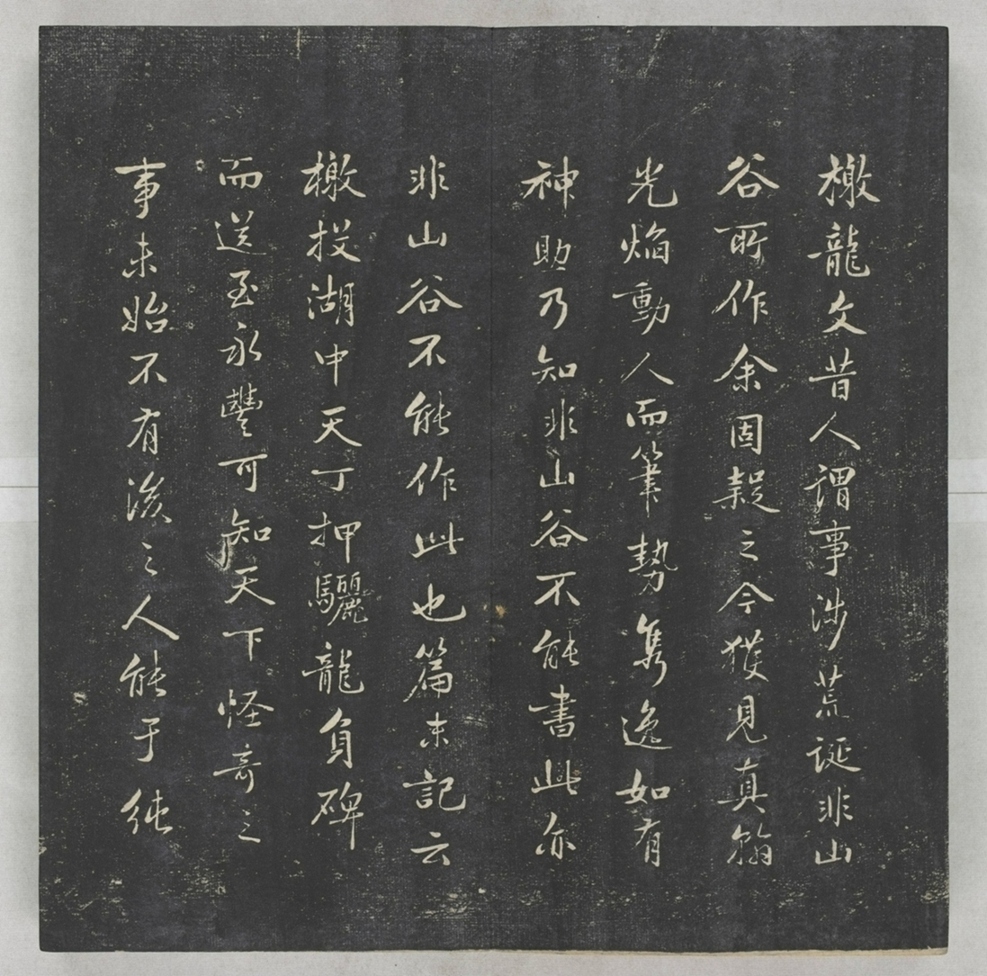 檄龍文昔人謂事涉荒誕非山
谷所作余固疑之今獲見真翰
光焰動人而筆勢雋逸如有
神助乃知非山谷不能書此亦
非山谷不能作此也篇末記云
檄投湖中天丁押驪龍負碑
而送至永豐可知天下怪奇之
事未始不有後之人能于純